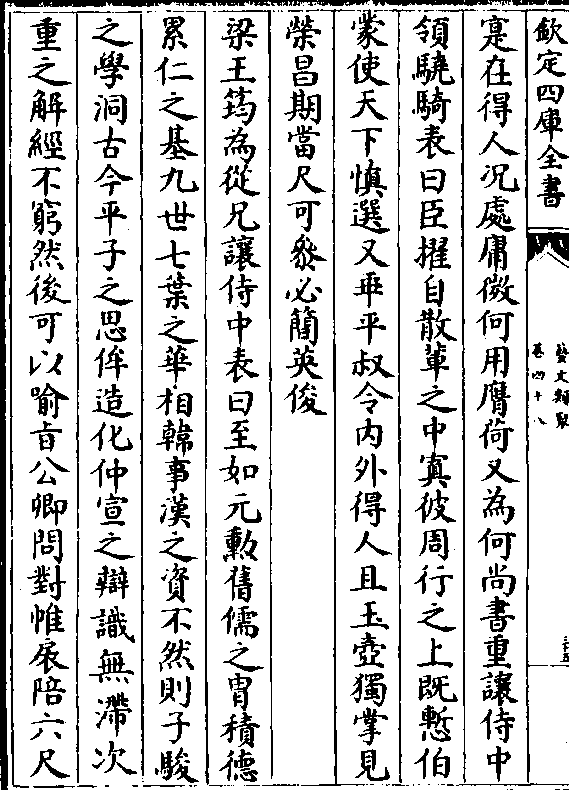 欽定四庫全書
藝文類聚
卷四十八
寔在得人况處庸微何用膺荷又為何尚書重讓侍中
領驍騎表曰臣擢自散輩之中寘彼周行之上既慙伯
蒙使天下慎選又乖平叔令内外得人且玉壺獨掌見
榮昌期當尺可叅必簡英俊
梁王筠為從兄讓侍中表曰至如元勲舊儒之胄積德
累仁之基九世七葉之華相韓事漢之資不然則子駿
之學洞古今平子之思侔造化仲宣之辯識無滯次
重之解經不窮然後可以喻㫖公卿問對帷扆陪六尺